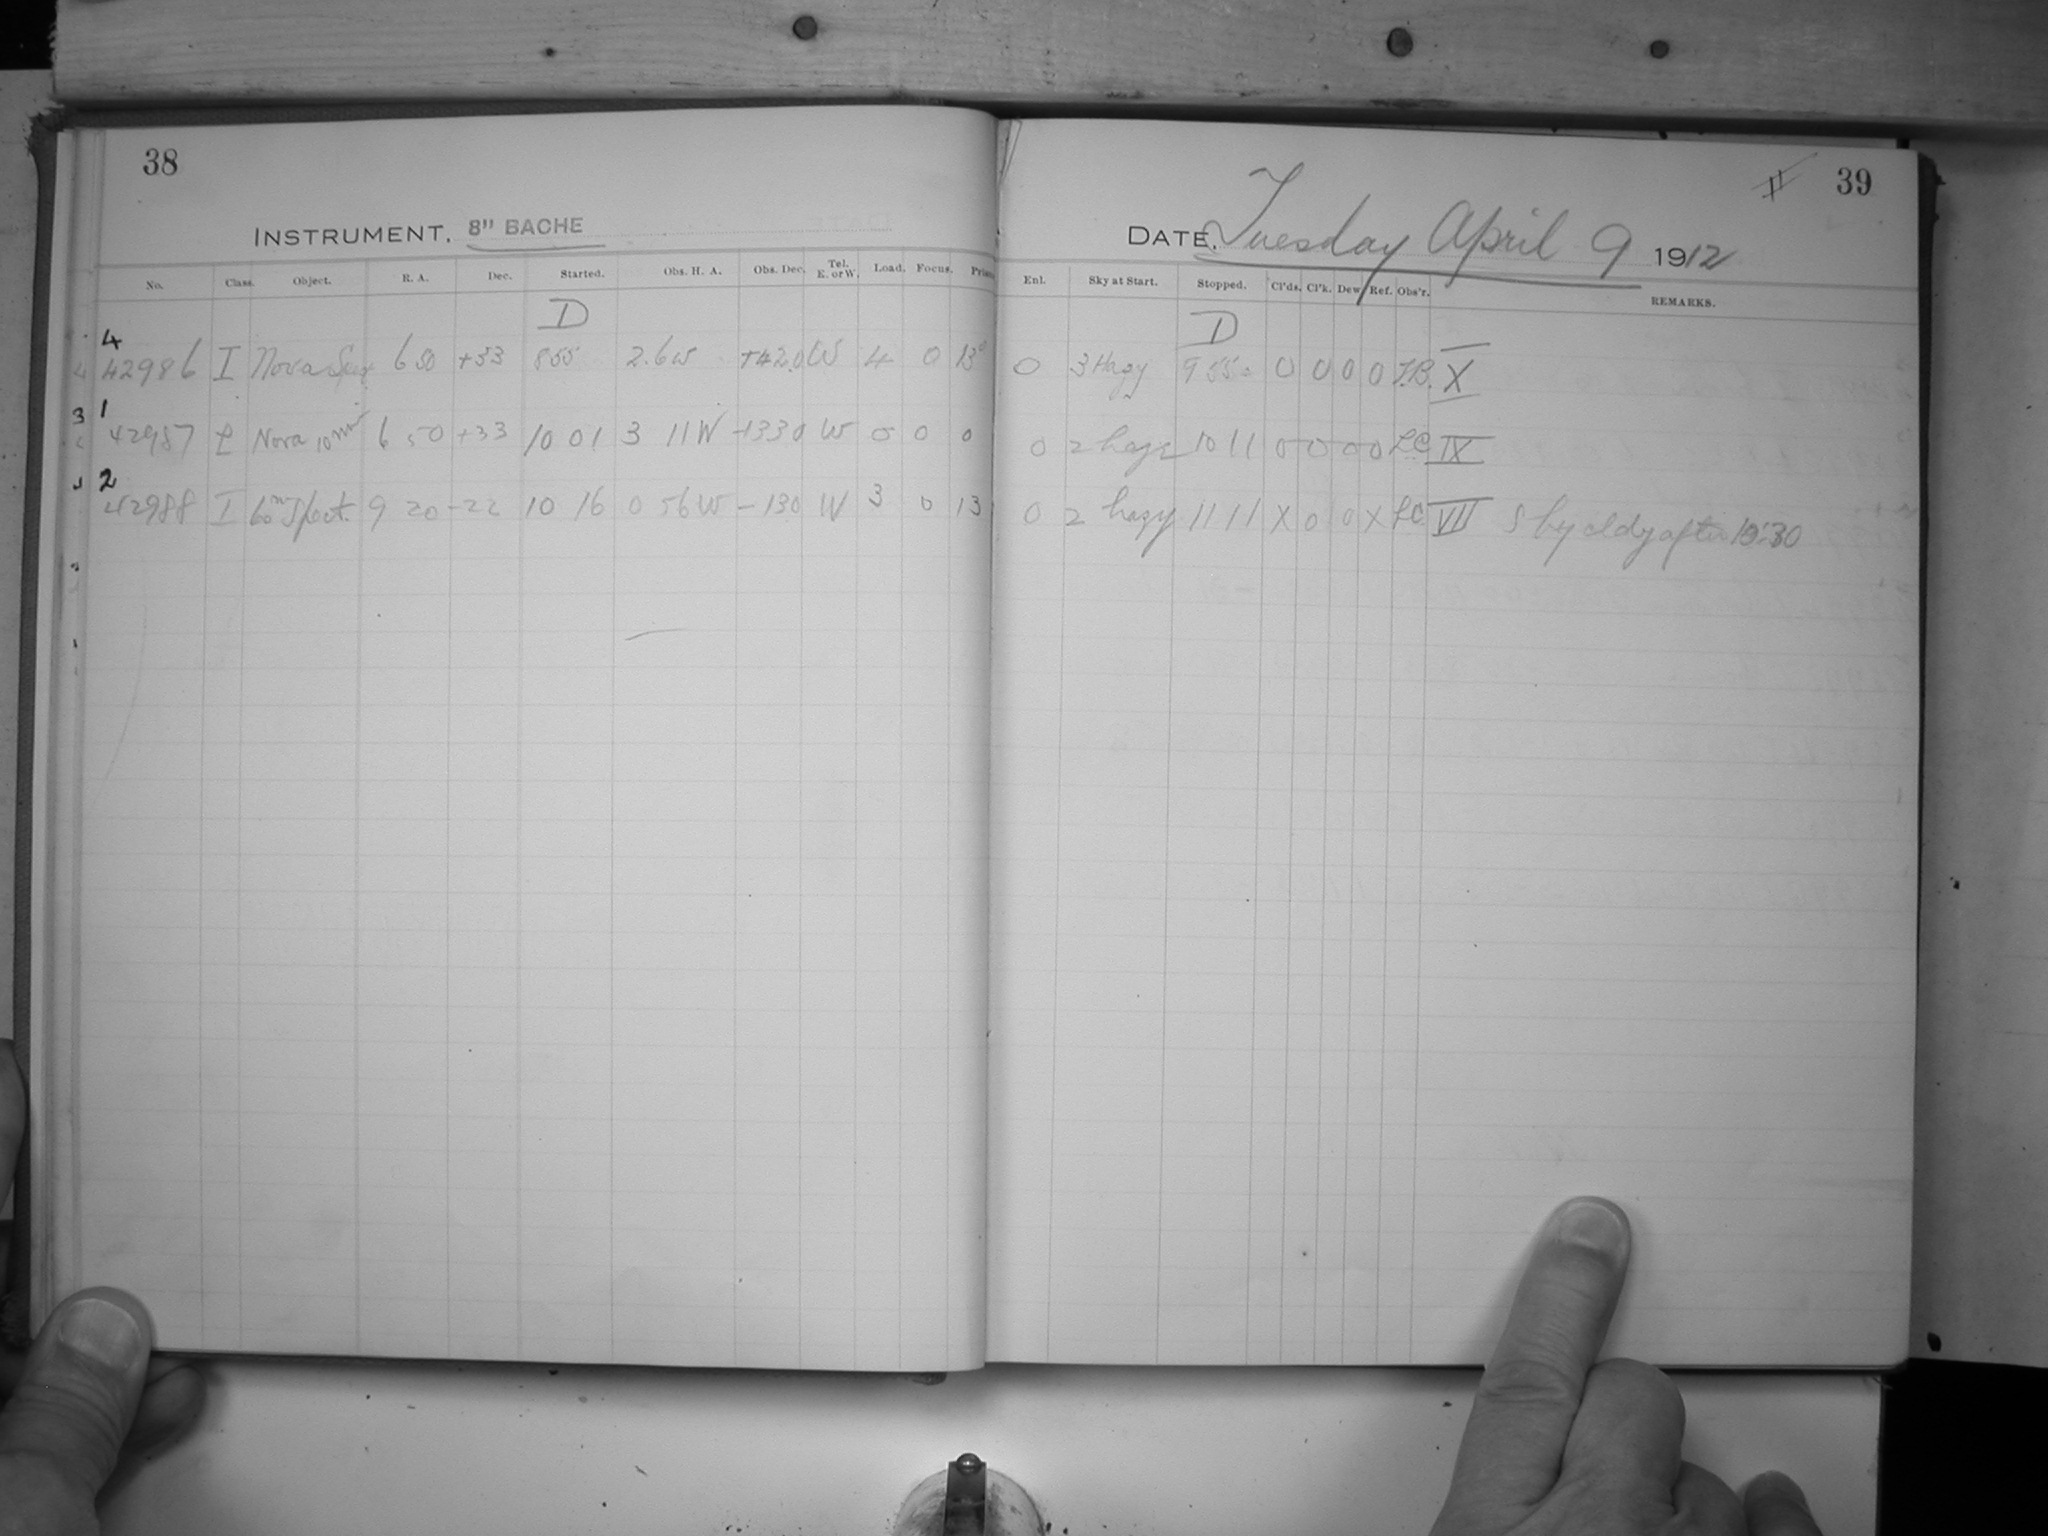 38
INSTRUMENT. 8" BACHE
No. Class. Object. R. A. Dec. Started. Obs. H. A. Obs. Dec. Tel. E. or W. Load. Focus.
D
4
42986 I Nova 6 50 +33 855 2.6W +42.0 W 4 0 13
3 1
42987 Nova 10 min 6 50 +33 10 01 3 11W +33 0 W 0 0 0
2
42988 I 60m Spect. 9 20 -22 10 16 0 56W -13 0 W 3 0 13
39
DATE. Tuesday April 9 1912
Enl. Sky at Start. Stopped. Cl'ds. Cl'k. Dew. Ref. Obs'r. REMARKS.
D
0 3 Hazy 9 55 0 0 0 0 X
0 2 haze 10 11 0 0 0 0 LC IX
0 2 hazy 11 11 X 0 0 X LC VII S by cldy after 10:30